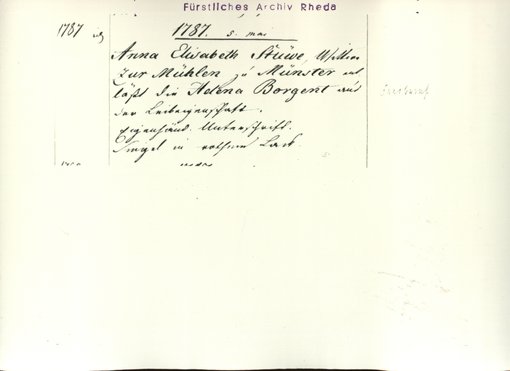 Fürstliches Archiv Rheda
1787
1787. 5. mai
Anna Elisabeth Stüwe, Wittwe
zur Mühlen zu Münster ent
läßt die Helena Borgert aus
der Leibeigenschaft.
Eigenhänd. Unterschrift.
Siegel in rothem Lack.